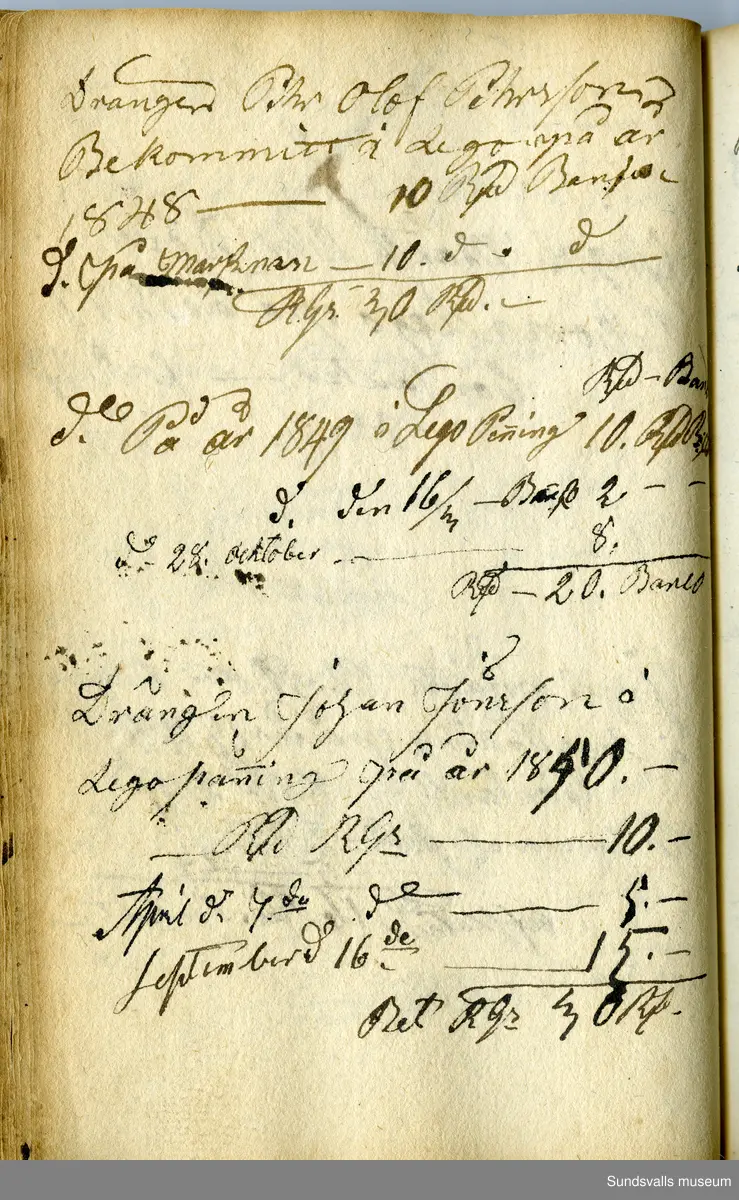 Drängen Pehr Olof Pehrsson
Bekommitt å Lego på år
1848 — 10 Rd Banco
d. på Marknan — 10. d . d
RGs 30 Rd. –
Rd – Ban
d.o På år 1849 i Lego Pening 10. Rd
d. den 16/3 – Banco 2 – –
do 28. oktober — 8.
Rd – 20. Banco
Drängen Johan Jönsson i
Lego pänning på år 1850. –
— Rd RGs — 10. –
April d. 7.de do — 5. –
September d 16 de — 15. –
Ret RGs 30 Rd.
Sundsvalls museum